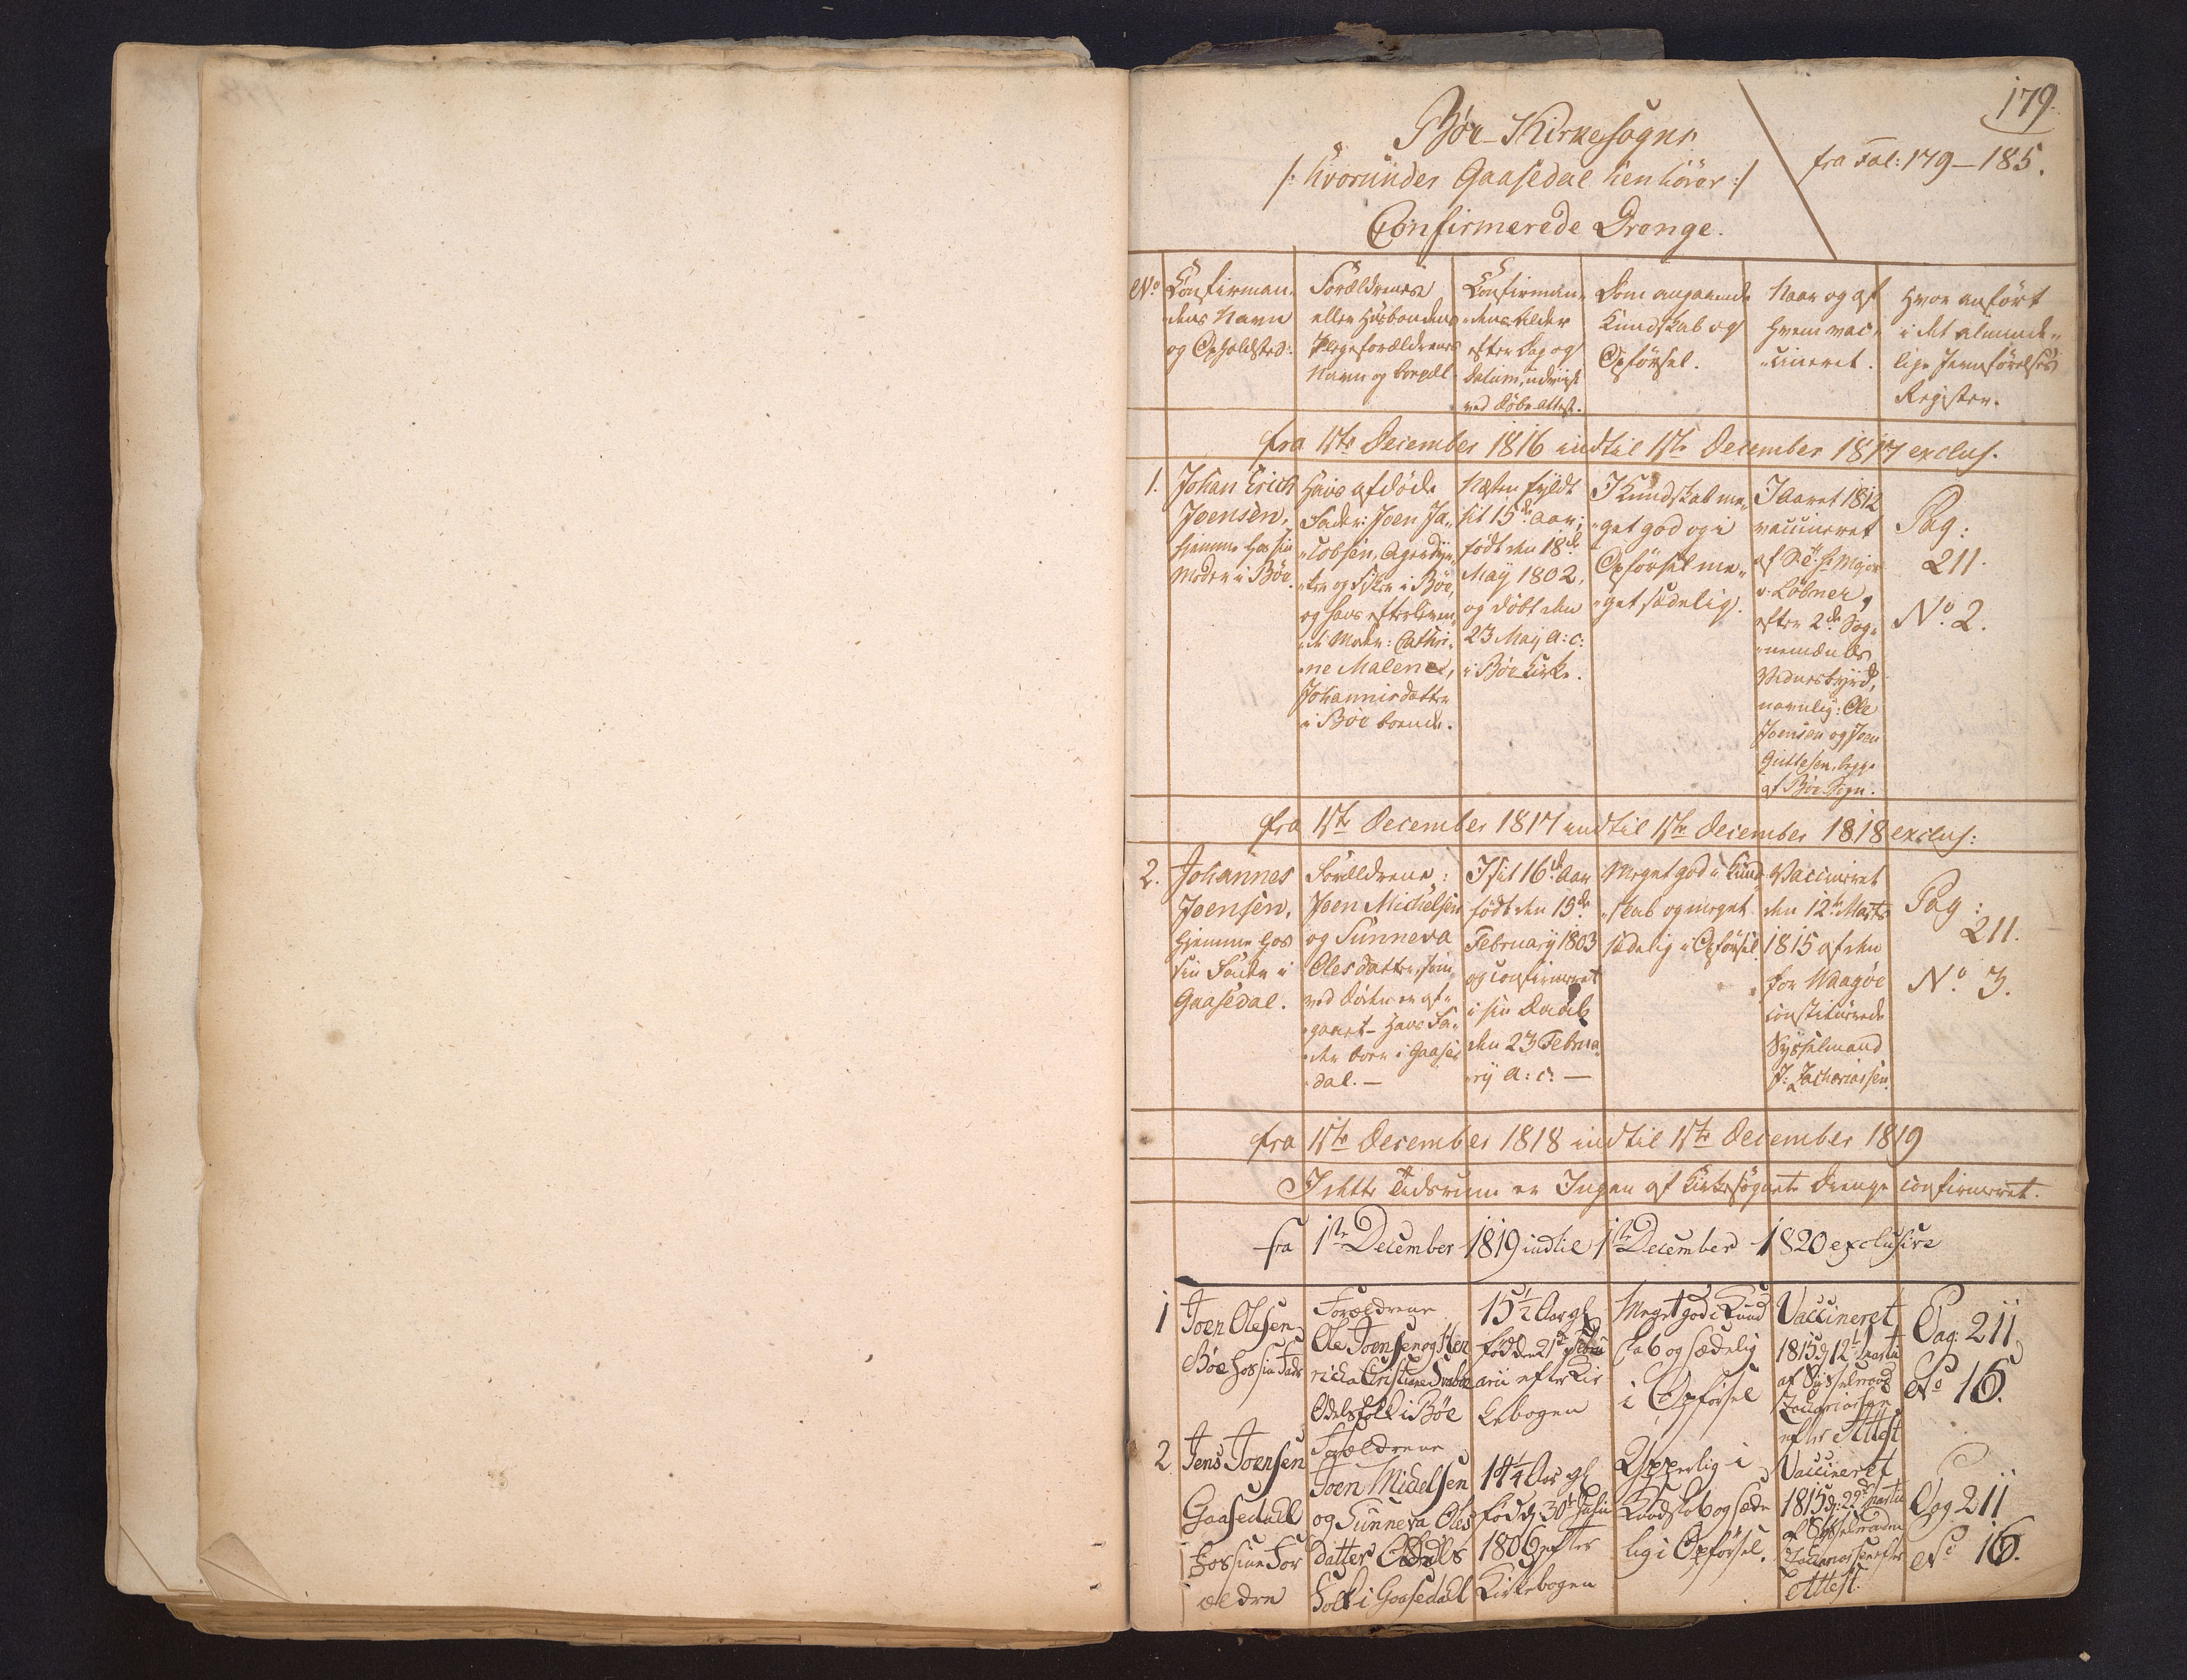 179.
Bøe-Kirkesogns
/: hvorunder Gaasedal henhører :/
fra Fol: 179-185.
Confirmerede Drenge.
No
Confirman-
dens Navn
og Opholdsted.
Forældrenes
eller Huusbondens
Plegeforældrenes
Navn og boepæl
Confirman-
dens Alder
efter Dag og
Datum, udviist
ved Døbe attest.
Dom angaaende
Kundskab og
Opførsel.
Naar og af
hvem vac-
cineret.
Hvor anført
i det alminde-
lige Jevnførelses
Register.
fra 1ste December 1816 indtil 1ste December 1817 exclus.
1.
Johan Erich
Joensen,
hjemme hos sin
Moder i Bøe.
Hans afdøde
Fader: Joen Ja-
cobsen, Agerdyr-
ker og Fisker i Bøe,
og hans efterleven-
de Moder: Cathri-
ne Malene,
Johannisdatter
i Bøe boende.
Næsten fyldt
sit 15de Aar;
født den 18de
May 1802,
og døbt den
23 May a: c:
i Bøe Kirke.
I Kundskab me-
get god og i
Opførsel me-
get sædelig.
I Aaret 1812
vaccineret
af Sr. Hr. Major
v: Løbner,
efter 2de Sog-
nemænds
Vidnesbyrd,
navnlig: Ole
Joensen og Joen
Guttesen, begge
af Bøe Sogn.
Pag:
211.
No. 2.
fra 1ste December 1817 indtil 1ste December 1818 exclus:
2.
Johannes
Joensen,
hjemme hos
sin Fader i
Gaasedal.
Forældrene:
Joen Michelsen
og Sunneva
Olesdatter, som
ved Døden er af-
gaaet - Hans Fa-
der boer i Gaase-
dal. -
I sit 16de Aar
født den 19de
February 1803
og confirmeret
i sin Daab
den 23 Februa-
ry a: c: -
Meget god i Kund-
skab og meget
sædelig i Opførsel.
Vaccineret
den 12te Marts
1815 af den
for Waagøe
constituerede
Sysselmand
J: Zachariassen.
Pag:
211.
No. 3.
fra 1ste December 1818 indtil 1ste December 1819
I dette Tidsrum er Ingen af Kirkesognets Drenge confirmeret.
fra 1ste December 1819 indtil 1ste December 1820 exclusive
1
Joen Olesen
Bøe hos sin Fader
Forældrene
Ole Joensen og Hen
rica Christiane Svaboe
Odelsfolk i Bøe
15 1/2 Aar gl
fød den 21de Febru
arii efter Kir
kebogen
Meget god i Kund
skab og sædelig
i Opførsel
Vaccineret
1815 d 12te Martii
af Sysselmand
Zachariassen
efter Attest
Pag: 211
No 15.
2
Jens Joensen
Gaasedall
hos sine For
ældre
Forældrene
Joen Michelsen
og Sunneva Oles
datter Odels
Folk i Gaasedal
14 1/4 Aar gl
fød d: 30te Julii
1806 efter
Kirkebogen
Ypperlig i
Kundskab og sæde
lig i Opførsel.
Vaccineret
1815 d: 29de Martii
af Sysselmanden
Zachariassen efter
Attest.
Pag 211
No 16.